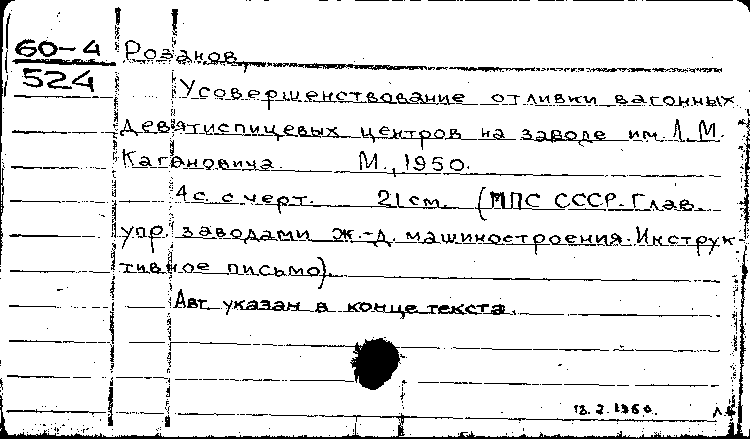 60-4 Розанов,
524
Усовершенствование отливки вагонных
девятиспицевых центров на заводе им. Л.М.
Кагановича. М., 1950.
4 с. с черт. 21 см. (МПС СССР. Глав.
упр. заводами ж.-д. машиностроения. Инструк-
тивное письмо).
Авт. указан в конце текста.